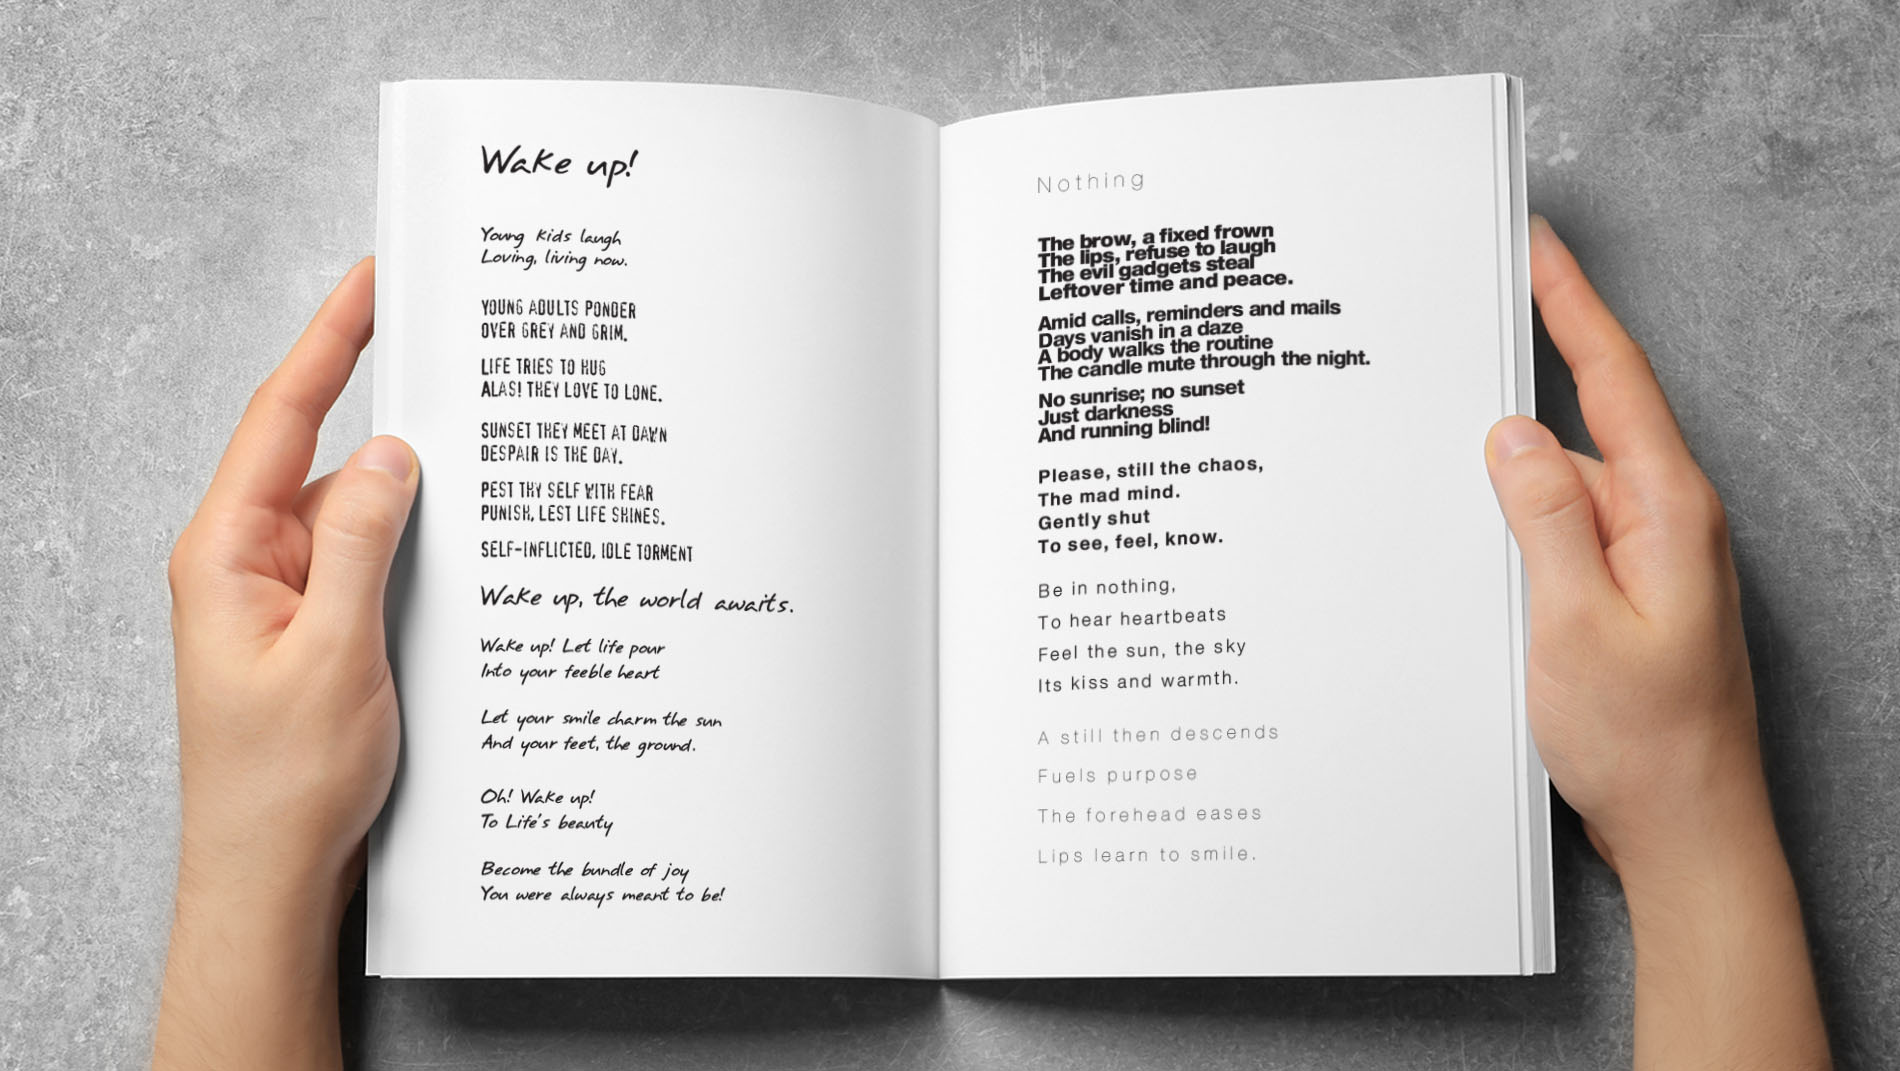 Wake up!
Young kids laugh
Loving, living now.
YOUNG ADULTS PONDER
OVER GREY AND GRIM.
LIFE TRIES TO HUG
ALAS! THEY LOVE TO LONE.
SUNSET THEY MEET AT DAWN
DESPAIR IS THE DAY.
PEST THY SELF WITH FEAR
PUNISH, LEST LIFE SHINES.
SELF-INFLICTED, IDLE TORMENT
Wake up, the world awaits.
Wake up! Let life pour
Into your feeble heart
Let your smile charm the sun
And your feet, the ground.
Oh! Wake up!
To Life's beauty
Become the bundle of joy
You were always meant to be!
Nothing
The brow, a fixed frown
The lips, refuse to laugh
The evil gadgets steal
Leftover time and peace.
Amid calls, reminders and mails
Days vanish in a daze
A body walks the routine
The candle mute through the night.
No sunrise; no sunset
Just darkness
And running blind!
Please, still the chaos,
The mad mind.
Gently shut
To see, feel, know.
Be in nothing,
To hear heartbeats
Feel the sun, the sky
Its kiss and warmth.
A still then descends
Fuels purpose
The forehead eases
Lips learn to smile.